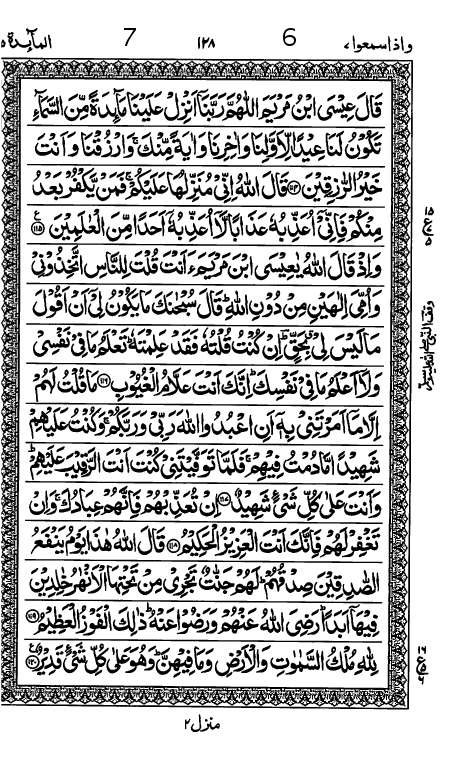 واذاسمعوا،
6
١٢٨
7
المآىٕدة ٥
قَالَ عِیْسَى ابْنُ مَرْیَمَ اللّٰهُمَّ رَبَّنَاۤ اَنْزِلْ عَلَیْنَا مَآىٕدَةً مِّنَ السَّمَآءِ
تَكُوْنُ لَنَا عِیْدًا لِّاَوَّلِنَا وَ اٰخِرِنَا وَ اٰیَةً مِّنْكَۚ وَ ارْزُقْنَا وَ اَنْتَ
خَیْرُ الرّٰزِقِیْنَ ﴿۱۱۴﴾ قَالَ اللّٰهُ اِنِّیْ مُنَزِّلُهَا عَلَیْكُمْۚ فَمَنْ یَّكْفُرْ بَعْدُ
مِنْكُمْ فَاِنِّیْۤ اُعَذِّبُهٗ عَذَابًا لَّاۤ اُعَذِّبُهٗۤ اَحَدًا مِّنَ الْعٰلَمِیْنَ ﴿۱۱۵﴾ ع
وَ اِذْ قَالَ اللّٰهُ یٰعِیْسَى ابْنَ مَرْیَمَ ءَاَنْتَ قُلْتَ لِلنَّاسِ اتَّخِذُوْنِیْ
وَ اُمِّیَ اِلٰهَیْنِ مِنْ دُوْنِ اللّٰهِؕ قَالَ سُبْحٰنَكَ مَا یَكُوْنُ لِیْۤ اَنْ اَقُوْلَ
مَا لَیْسَ لِیْۗ بِحَقٍّؕ اِنْ كُنْتُ قُلْتُهٗ فَقَدْ عَلِمْتَهٗؕ تَعْلَمُ مَا فِیْ نَفْسِیْ
وَ لَاۤ اَعْلَمُ مَا فِیْ نَفْسِكَؕ اِنَّكَ اَنْتَ عَلَّامُ الْغُیُوْبِ ﴿۱۱۶﴾ مَا قُلْتُ لَهُمْ
اِلَّا مَاۤ اَمَرْتَنِیْ بِهٖۤ اَنِ اعْبُدُوا اللّٰهَ رَبِّیْ وَ رَبَّكُمْۚ وَ كُنْتُ عَلَیْهِمْ
شَهِیْدًا مَّا دُمْتُ فِیْهِمْۚ فَلَمَّا تَوَفَّیْتَنِیْ كُنْتَ اَنْتَ الرَّقِیْبَ عَلَیْهِمْؕ
وَ اَنْتَ عَلٰى كُلِّ شَیْءٍ شَهِیْدٌ ﴿۱۱۷﴾ اِنْ تُعَذِّبْهُمْ فَاِنَّهُمْ عِبَادُكَۚ وَ اِنْ
تَغْفِرْ لَهُمْ فَاِنَّكَ اَنْتَ الْعَزِیْزُ الْحَكِیْمُ ﴿۱۱۸﴾ قَالَ اللّٰهُ هٰذَا یَوْمُ یَنْفَعُ
الصّٰدِقِیْنَ صِدْقُهُمْؕ لَهُمْ جَنّٰتٌ تَجْرِیْ مِنْ تَحْتِهَا الْاَنْهٰرُ خٰلِدِیْنَ
فِیْهَاۤ اَبَدًاؕ رَضِیَ اللّٰهُ عَنْهُمْ وَ رَضُوْا عَنْهُؕ ذٰلِكَ الْفَوْزُ الْعَظِیْمُ ﴿۱۱۹﴾
لِلّٰهِ مُلْكُ السَّمٰوٰتِ وَ الْاَرْضِ وَ مَا فِیْهِنَّؕ وَ هُوَ عَلٰى كُلِّ شَیْءٍ قَدِیْرٌ ﴿۱۲۰﴾ ع
منزل ۲